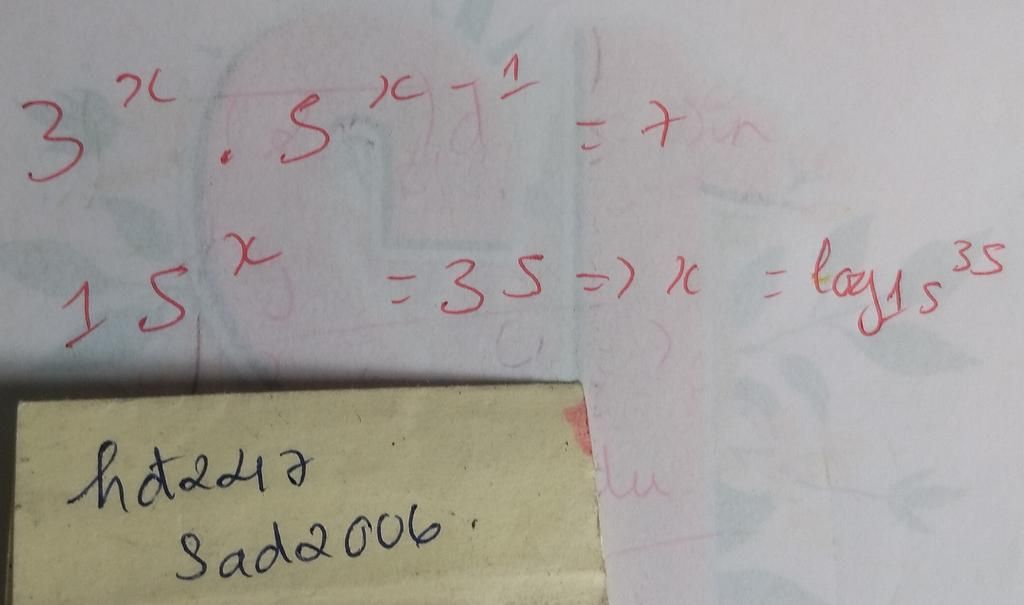 3^x . 5^(x-1) = 7
15^x = 35 => x = log_15 35
hd2247
Sad2006.